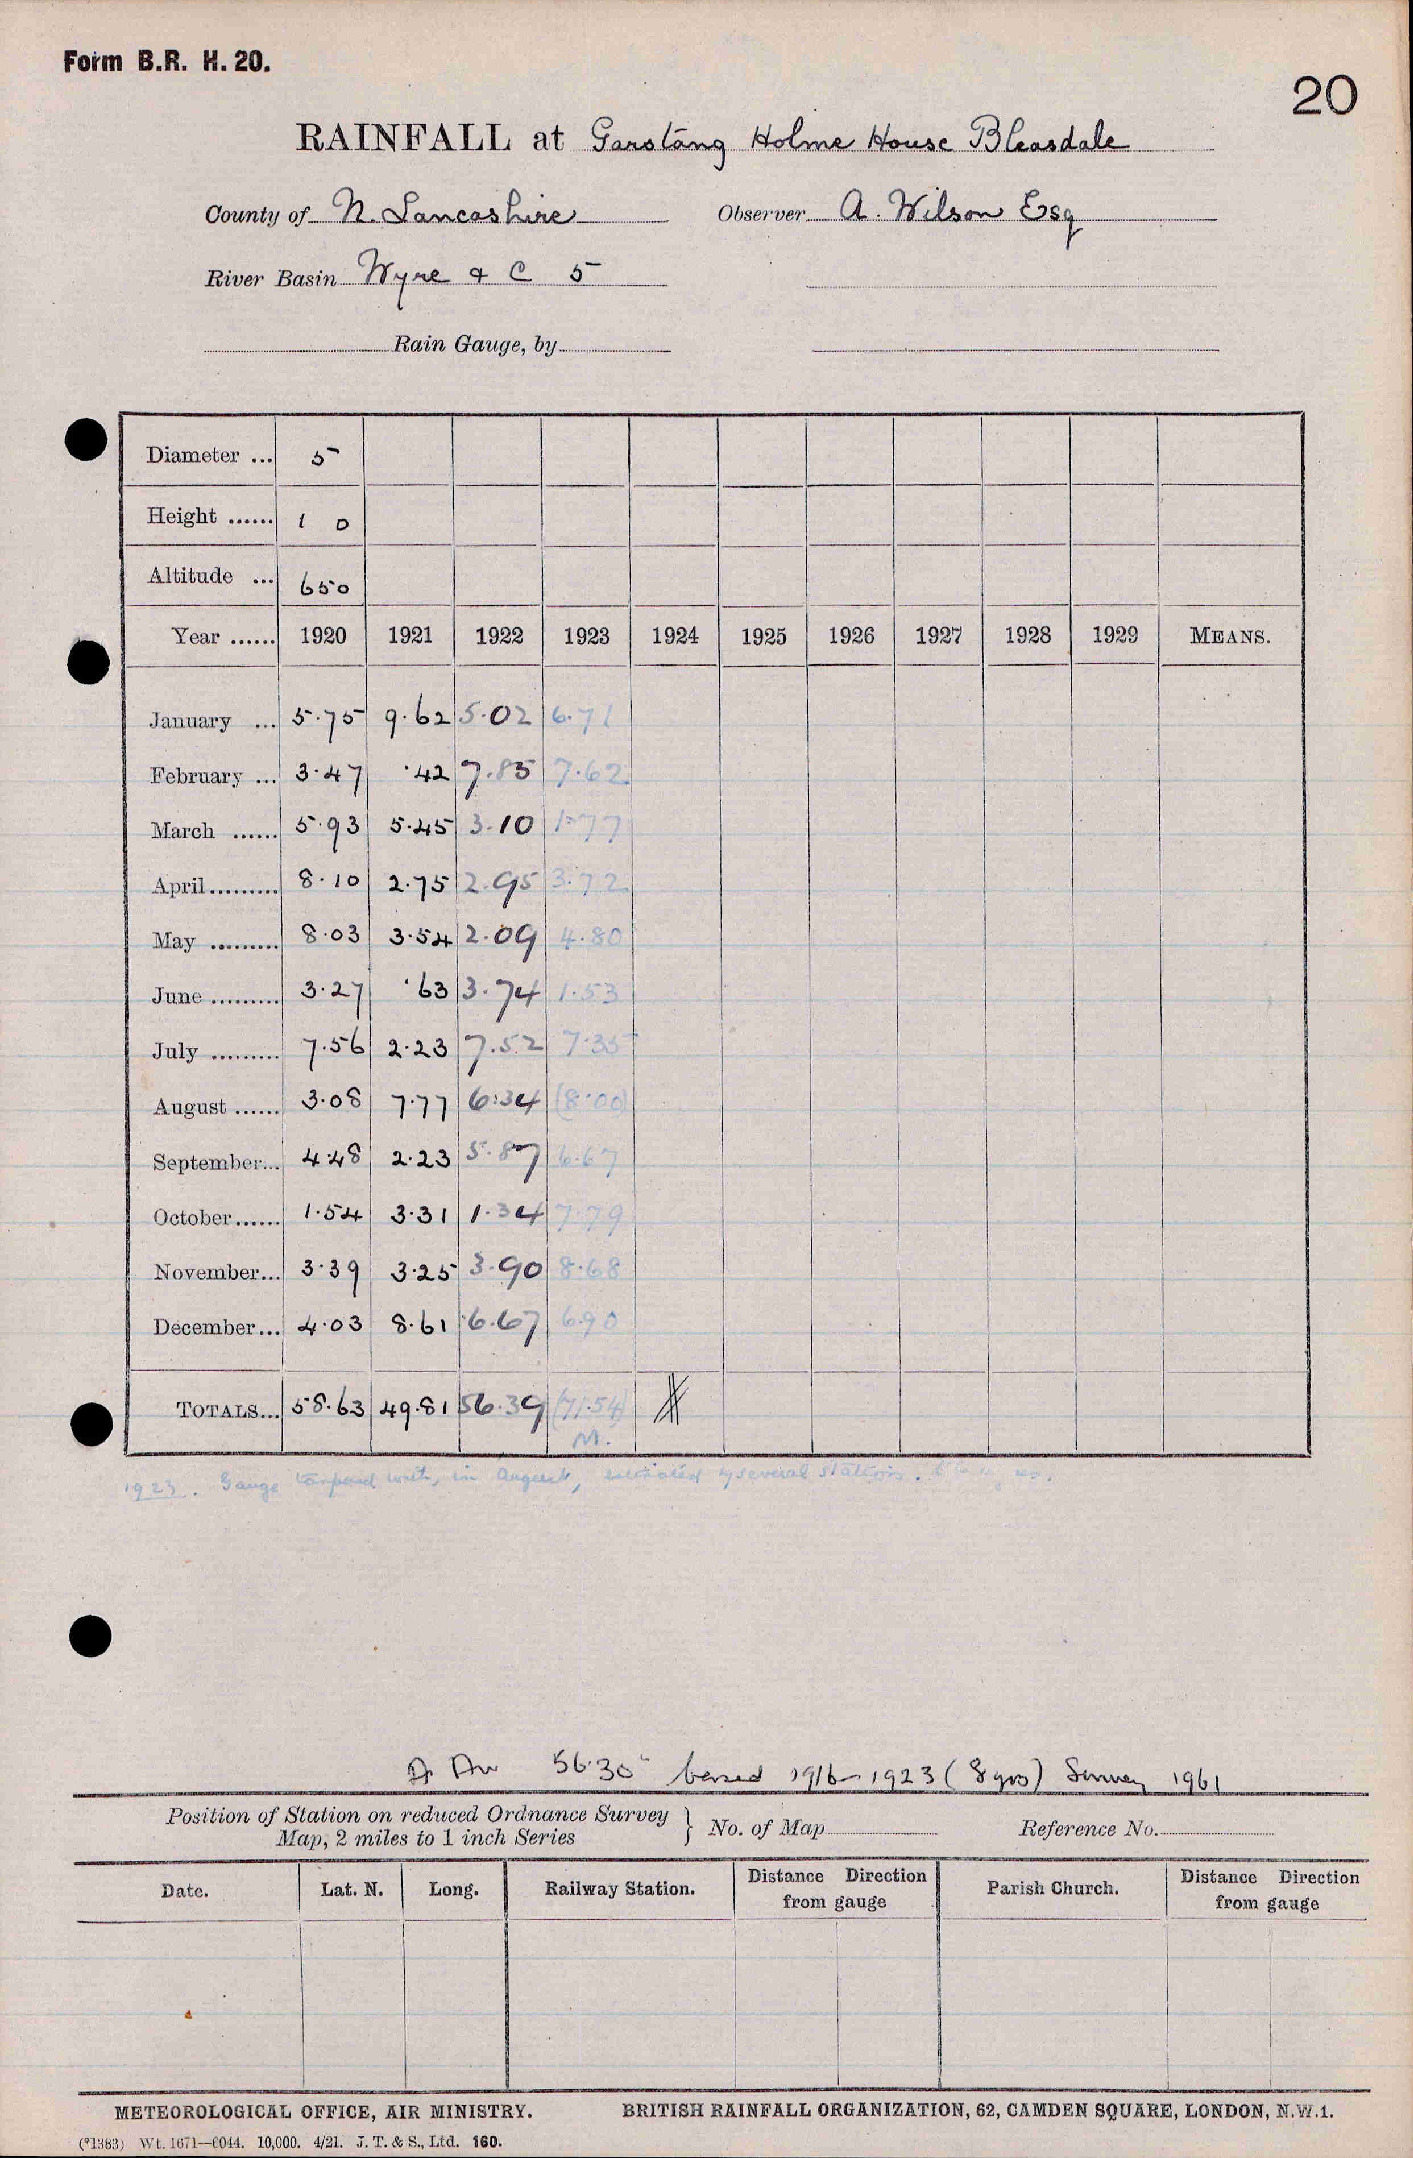 Form B.R. H. 20.
20
RAINFALL at Garstang Holme House Bleasdale
County of N. Lancashire Observer A. Wilson Esq
River Basin Wyre & C 5
Rain Gauge, by
Diameter ... 5
Height ...... 1 0
Altitude ... 650
Year ...... 1920 1921 1922 1923 1924 1925 1926 1927 1928 1929 MEANS.
January ... 5.75 9.62 5.02 6.71
February ... 3.47 .42 7.85 7.62
March ...... 5.93 5.45 3.10 1.77
April......... 8.10 2.75 2.95 3.72
May ......... 8.03 3.54 2.09 4.80
June ......... 3.27 .63 3.74 1.53
July ......... 7.56 2.23 7.52 7.35
August ...... 3.08 7.77 6.34 (8.00)
September... 4.48 2.23 5.87 6.67
October...... 1.54 3.31 1.34 7.79
November... 3.39 3.25 3.90 8.68
December... 4.03 8.61 6.67 6.90
TOTALS... 58.63 49.81 56.39 (71.54)
M.
1923. Gauge tampered with, in August, estimated by several stations.
Av 56.30 based 1916-1923 (8 yrs) Survey 1961
Position of Station on reduced Ordnance Survey Map, 2 miles to 1 inch Series } No. of Map Reference No.
Date. Lat. N. Long. Railway Station. Distance Direction from gauge Parish Church. Distance Direction from gauge
METEOROLOGICAL OFFICE, AIR MINISTRY. BRITISH RAINFALL ORGANIZATION, 62, CAMDEN SQUARE, LONDON, N.W.1.
(*1383) Wt. 1671—6044. 10,000. 4/21. J. T. & S., Ltd. 160.